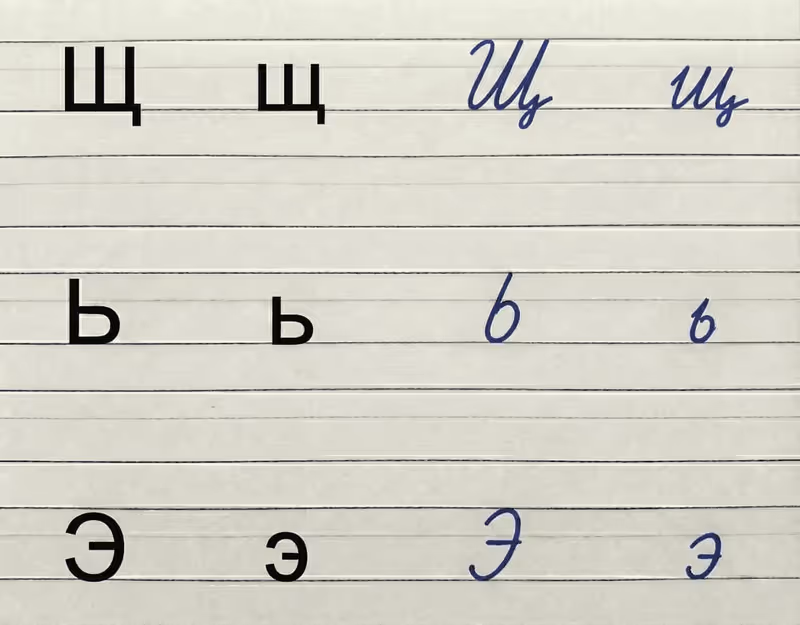 Щ щ Щ щ
Ь ь Ь ь
Э э Э э